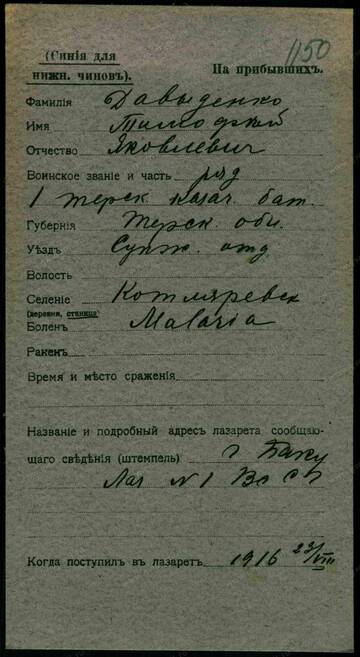 1150
(Синія для
нижн. чиновъ).
На прибывшихъ.
Фамилія Давыденко
Имя Тимофей
Отчество Яковлевич
Воинское званіе и часть ряд
1 терск казач. бат.
Губернія Терск. обл.
Уѣздъ Сунж. отд
Волость
Селеніе Котляревск
(деревня, станица)
Боленъ Malaria
Раненъ
Время и мѣсто сраженія
Названіе и подробный адресъ лазарета сообщаю-
щаго свѣдѣнія (штемпель) г Баку
Лаз N 1
Когда поступилъ въ лазаретъ 1916 23/VIII